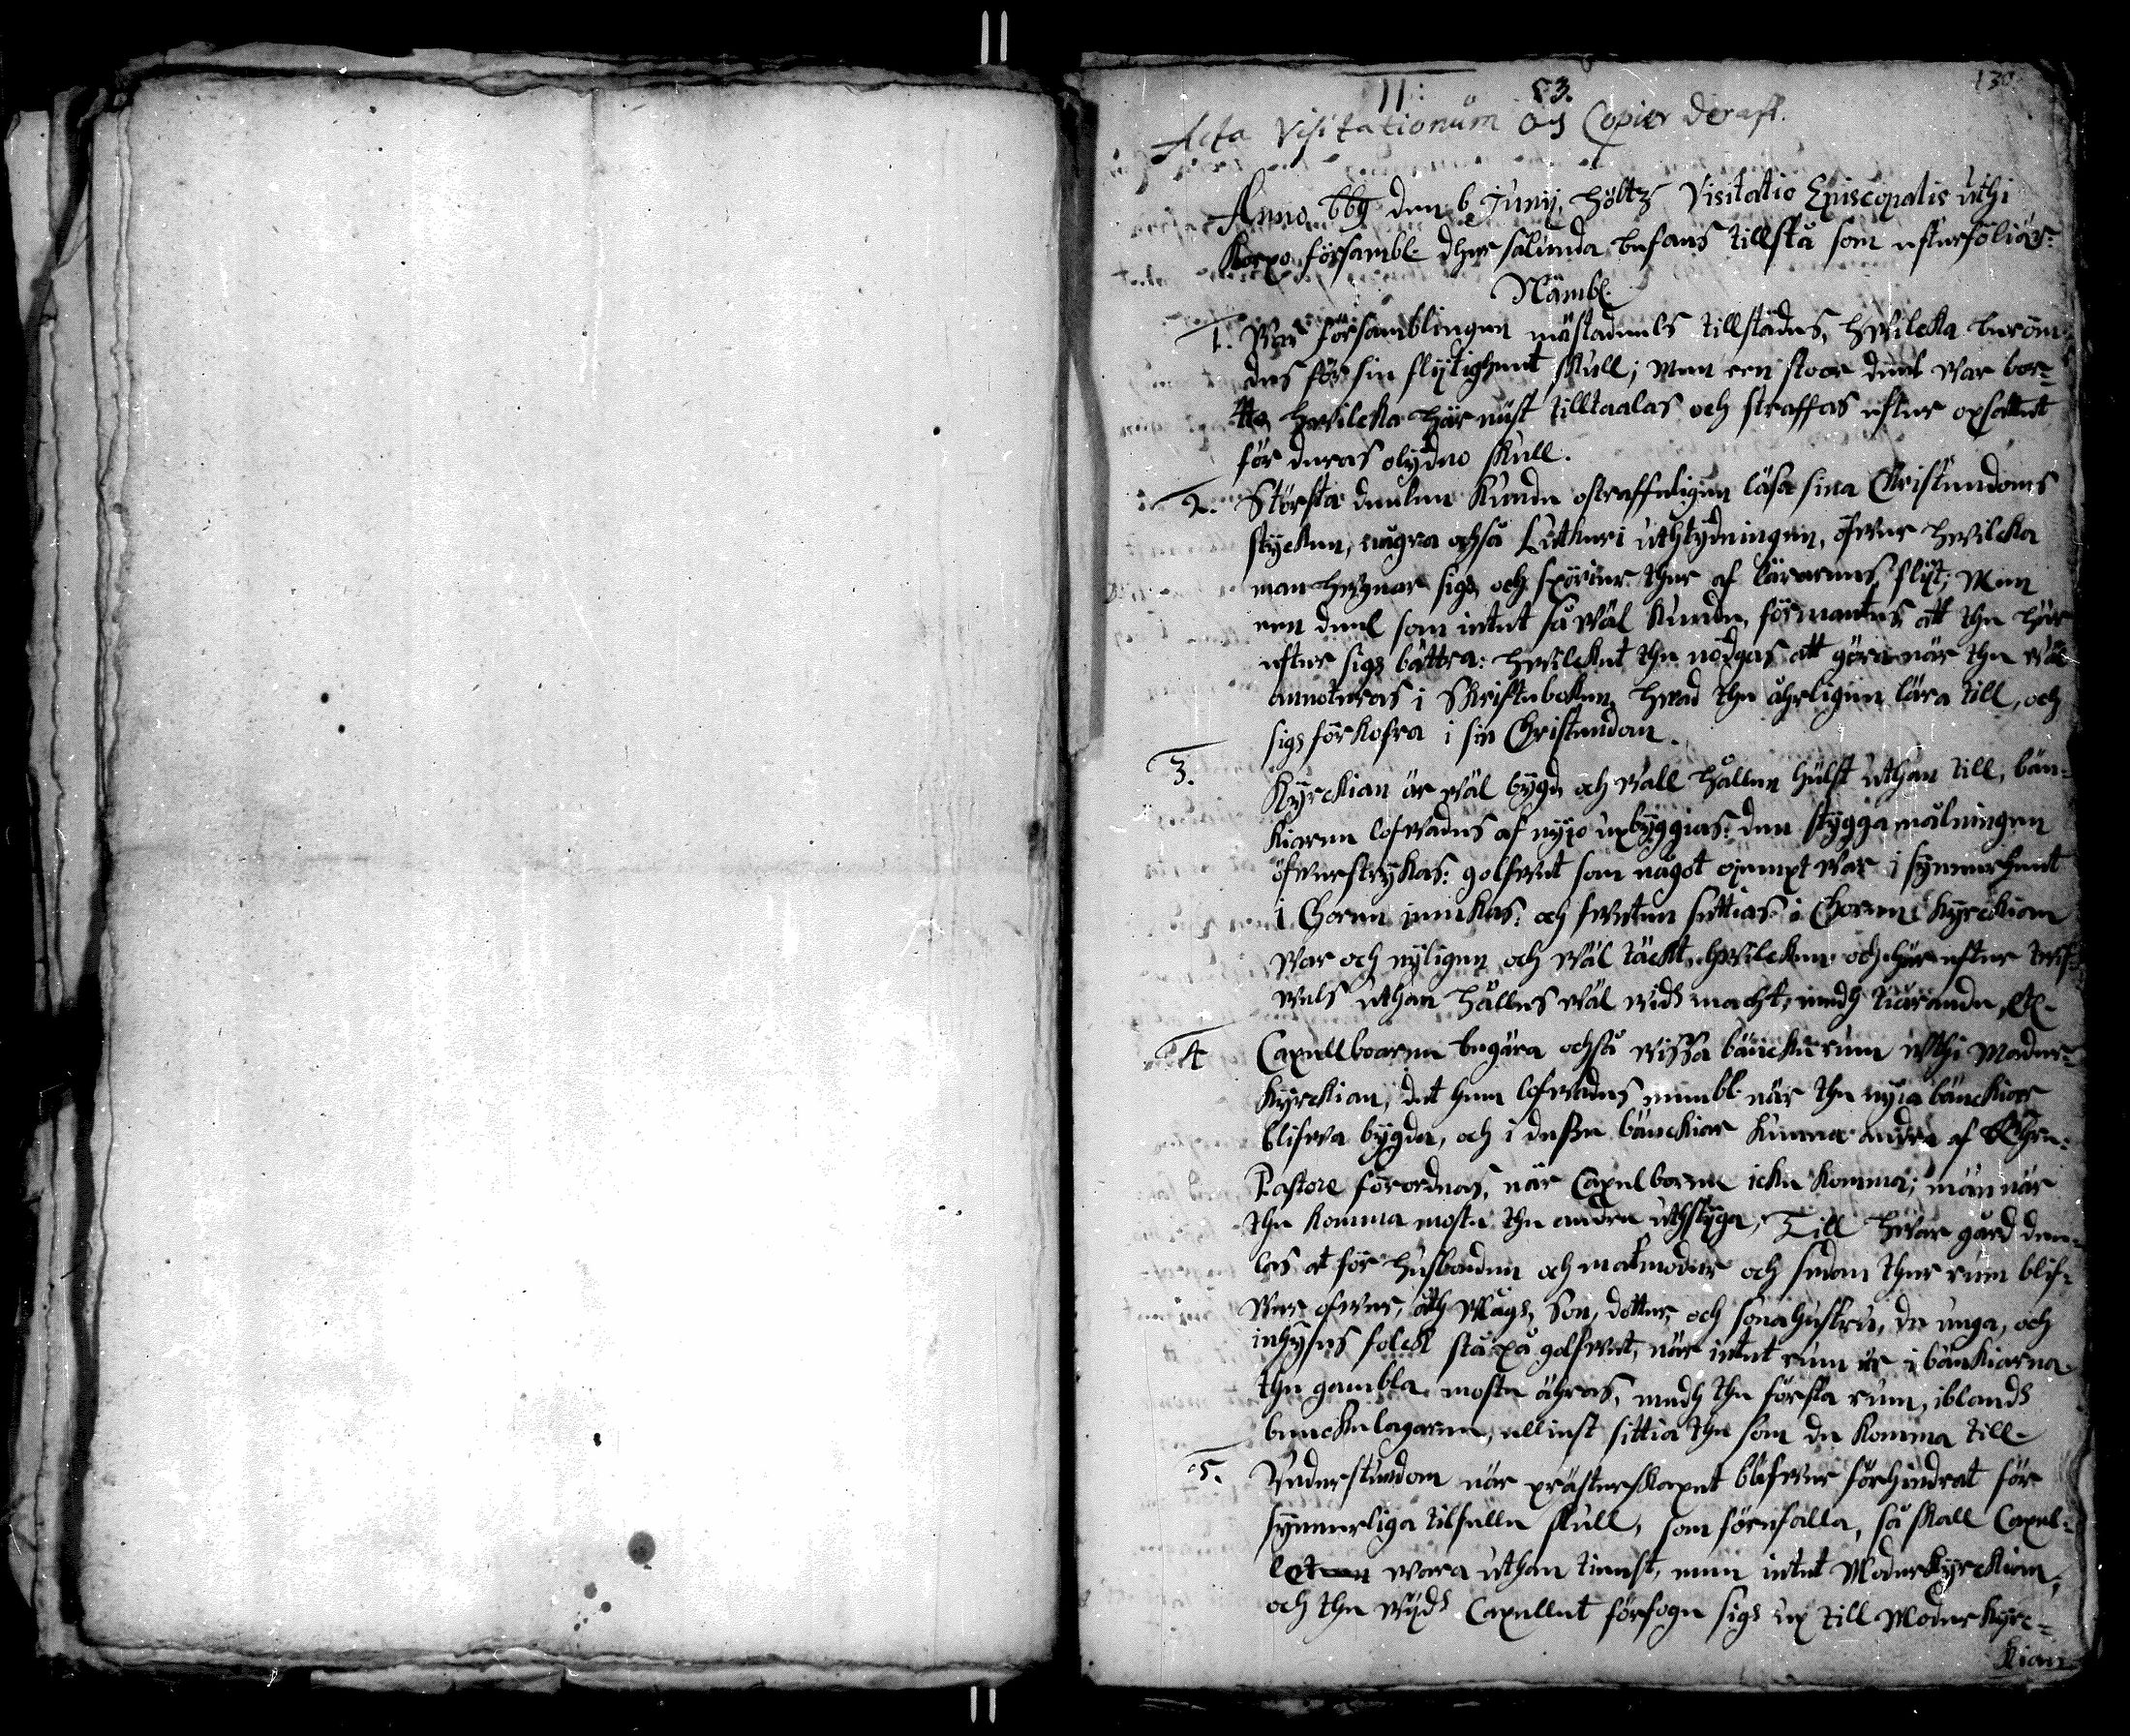 130
11: 83.
Acta Visitationum och Copier deraff.
Anno 669 den 6 Junij, höltz Visitatio Episcopalis uthi
Korpo försambl. dher sålunda befans tillstå som efterföliar:
Nämbl.
1. War församblingen mästadeels tillstädes, hwilcka beröm-
des för sin flijtigheet skull; men een stoor deel war bor-
tto, hwilcka här näst tilltaalas och straffas efter opsattet
för deras olydno skull.
2. Största deelen kunde ostraffeligen läsa sina Christendoms
stycken, några ochså Lutheri uthtydningen, öfwer hwilcka
man hugnar sigh och spörier ther af lärarens flijt; Men
een deel som intet så wäl kunde, förmantes att the här
efter sigh bättra: hwilcket the nödgas att göra när the wäl
annoteras i Skrifteboken, hwad the åhrligen lära till, och
sigh förkofra i sin Christendom.
3. Kyrckian är wäl bygd och wäll hållen hälst uthan till, bän-
kiarne lofwades af nyjo upbyggias: den stygga målningen
öfwerstrykas: golfwet som något ojempt war i synnerheet
i Choren jemkas: och sweten settias i Choren: Kyrckian
war och nyligen och wäl täckt, hwilcken och här efter twif-
wels uthan hålles wäl widh macht, medh tiärande, etc.
4 Capellboarne begära ochså wissa bäncke rum uthi Moder-
kyrckian, det hem lofwades nembl. när the nyia bänckiar
blifwa bygde, och i deße bänckiar kunna andra af Ehre-
Pastore förordnas, när Capelborne icke komma; män när
the komma moste the andre uthstyga, Till hwar gård dee-
las et för husbonden och matmoder och sedan ther rum blif-
wer ofwer, åth Mågh, Son, dotter, och sonahustru, de unga, och
inhyses folck stå på golfwet, när intet rum är i bänkiarna
the gambla moste ähras, medh the första rum, iblandh
benckelagarne, elliest sittia the som de komma till.
5. Understundom när prästerskapet blifwer förhindrat för
synnerliga tilfelle skull, som förefalla, så skall Capel-
let wara uthan tienst, men intet Moderkyrckian,
och the wydh Capellet förfoge sigh up till Moder kyrc-
kian